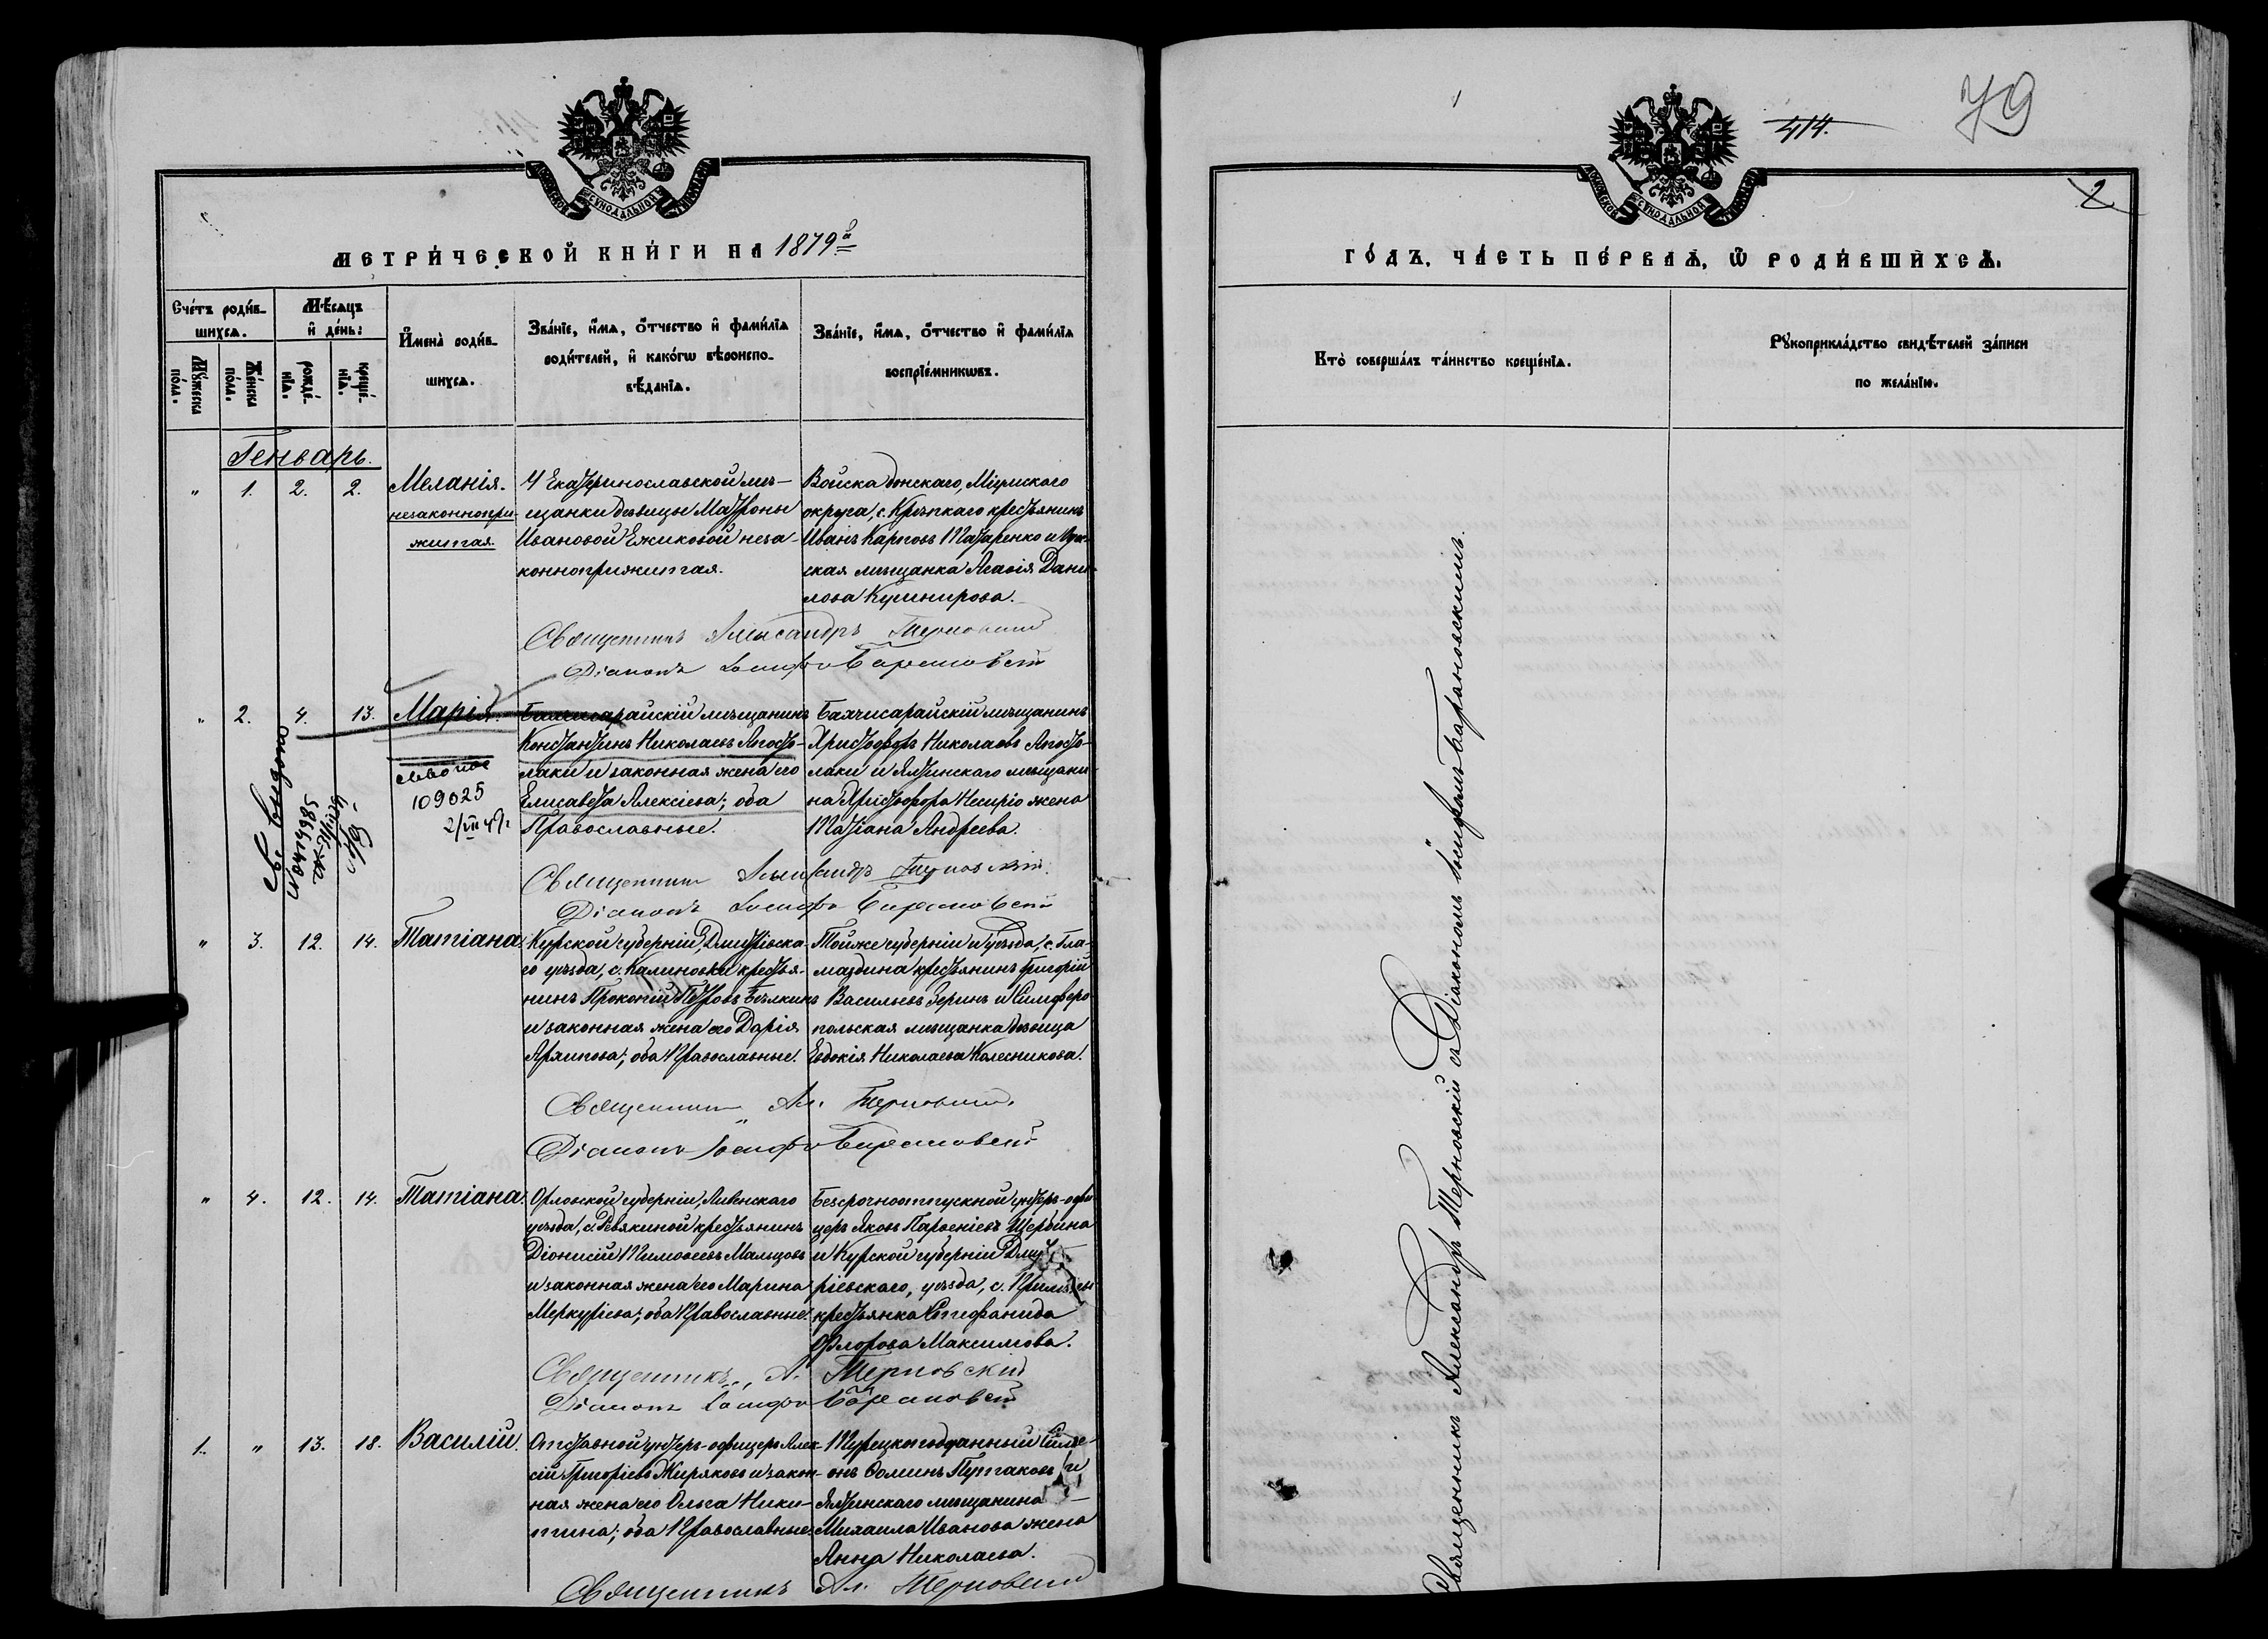 МЕТРИ́ЧЕСКОЙ КНИ́ГИ НА 1879 й
Сче́тъ роди́в-
шихсѧ.
Мꙋ́жеска
по́ла.
Же́нска
пола.
Мѣ́сяцъ
и҆ де́нь:
рожде́-
нїѧ.
креще́-
нїѧ.
И҆мена̀ роди́в-
шихсѧ.
Зва́нїе, и҆́мѧ, ѻ҆́тчество и҆ фами́лїѧ
роди́телей, и҆ како́гѡ вѣроиспо-
вѣ́данїѧ.
Зва́нїе, и҆́мѧ, ѻ҆́тчество и҆ фами́лїѧ
воспрїе́мникѡвъ.
Генварь.
" 1. 2. 2. Меланія.
незаконнопри-
житая.
У Екатеринославской мѣ-
щанки девицы Матроны
Ивановой Ежиковой неза-
коннoприжитая.
Войска донскаго, Міусскаго
округа, с. Крѣпкаго крестьянинъ
Иванъ Карповъ Назаренко и
ская мѣщанка Агафія Дани-
лова Кушнирова.
Священникъ Александръ Терновскій
Діаконъ Іосифъ Барановскій
" 2. 4. 13. Марія.
109025
2/VII 47г.
Бахчисарайскій мѣщанинъ
Константинъ Николаевъ Апосто-
лаки и законная жена его
Елисавета Алексіева; оба
Православные.
Бахчисарайскій мѣщанинъ
Христофоръ Николаевъ Апосто-
лаки и Ялтинскаго мѣщани-
на Христофора жена
Татіана Андреева.
Священникъ Александръ Терновскій
Діаконъ Іосифъ Барановскій
" 3. 12. 14. Татіана.
Курской губерніи, Дмитріевска-
го уѣзда, с. Калиновки крестья-
нинъ Прокопій Петровъ Бѣлкинъ
и законная жена его Дарія
Архипова; оба Православные.
Тойже губерніи и уѣзда, с. Гла-
маздина крестьянинъ Григорій
Васильевъ Зеринъ и Симферо-
польская мѣщанка девица
Евдокія Николаева Колесникова.
Священникъ Ал. Терновскій
Діаконъ Іосифъ Барановскій
" 4. 12. 14. Татіана.
Орловской губерніи, Ливенскаго
уѣзда, с. Ревякиной крестьянинъ
Діонисій Тимофеевъ Мальцовъ
и законная жена его Марина
Меркуріева; оба Православные.
Безсрочноотпускной унтеръ-офи-
церъ Яковъ Парфеніевъ Щербина
и Курской губерніи Дмит-
ріевскаго, уѣзда, с.
крестьянка Стефанида
Флорова Максимова.
Священникъ А. Терновскій
Діаконъ Іосифъ Барановскій
1. " 13. 18. Василій.
Отставной унтеръ-офицеръ Алек-
сій Григоріевъ Жиряковъ и закон-
ная жена его Ольга Ники-
тина; оба Православные.
Турецкоподданный Симе-
онъ Ѳоминъ Путаковъ и
Ялтинскаго мѣщанина
Михаила Иванова жена
Анна Николаева.
Священникъ Ал. Терновскій
414.
79
2
ГО́ДЪ, ЧА́СТЬ ПЕ́РВАѦ, Ѡ҆ РОДИ́ВШИХСѦ.
Кто̀ соверша́лъ та́инство креще́нїѧ.
Рꙋкоприкла́дство свидѣ́телей за́писи
по жела́нїю.
Священникъ Александръ Терновскій съ Діакономъ Іосифомъ Барановскимъ.